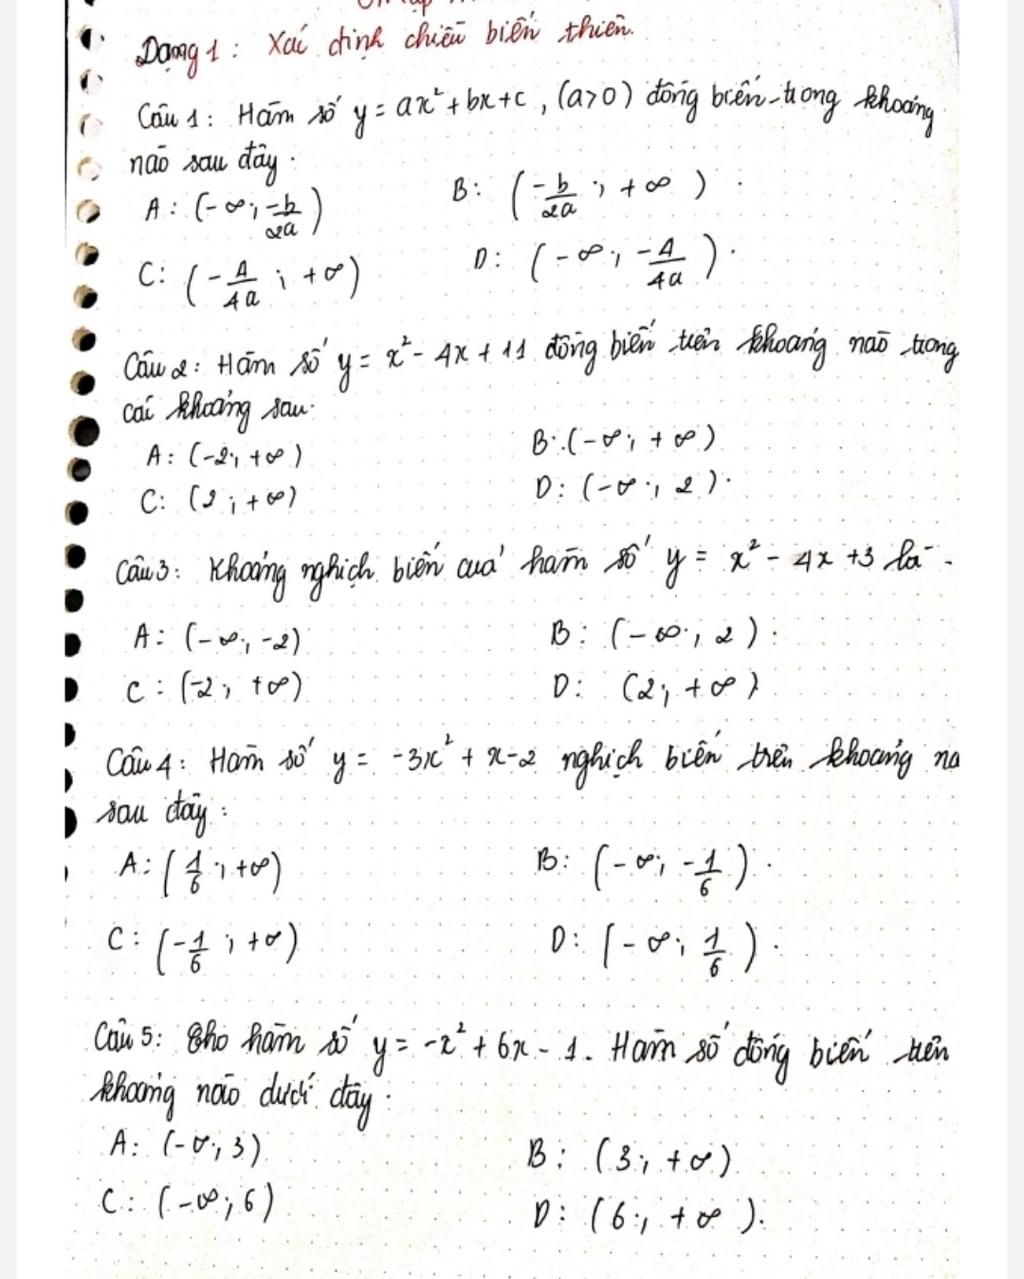 Dạng 1: Xác định chiều biến thiên.
Câu 1: Hàm số y = ax² + bx + c, (a>0) đồng biến trong khoảng
nào sau đây.
A: (-∞; -b/2a) B: (-b/2a; +∞).
C: (-Δ/4a; +∞) D: (-∞; -Δ/4a).
Câu 2: Hàm số y = x² - 4x + 11 đồng biến trên khoảng nào trong
các khoảng sau.
A: (-2; +∞) B: (-∞; +∞)
C: (2; +∞) D: (-∞; 2).
Câu 3: Khoảng nghịch biến của hàm số y = x² - 4x + 3 là -
A: (-∞; -2) B: (-∞; 2).
C: (-2; +∞) D: (2; +∞)
Câu 4: Hàm số y = -3x² + x - 2 nghịch biến trên khoảng nà
sau đây:
A: (1/6; +∞) B: (-∞; -1/6).
C: (-1/6; +∞) D: (-∞; 1/6).
Câu 5: Cho hàm số y = -x² + 6x - 1. Hàm số đồng biến trên
khoảng nào dưới đây.
A: (-∞; 3) B: (3; +∞)
C: (-∞; 6) D: (6; +∞).